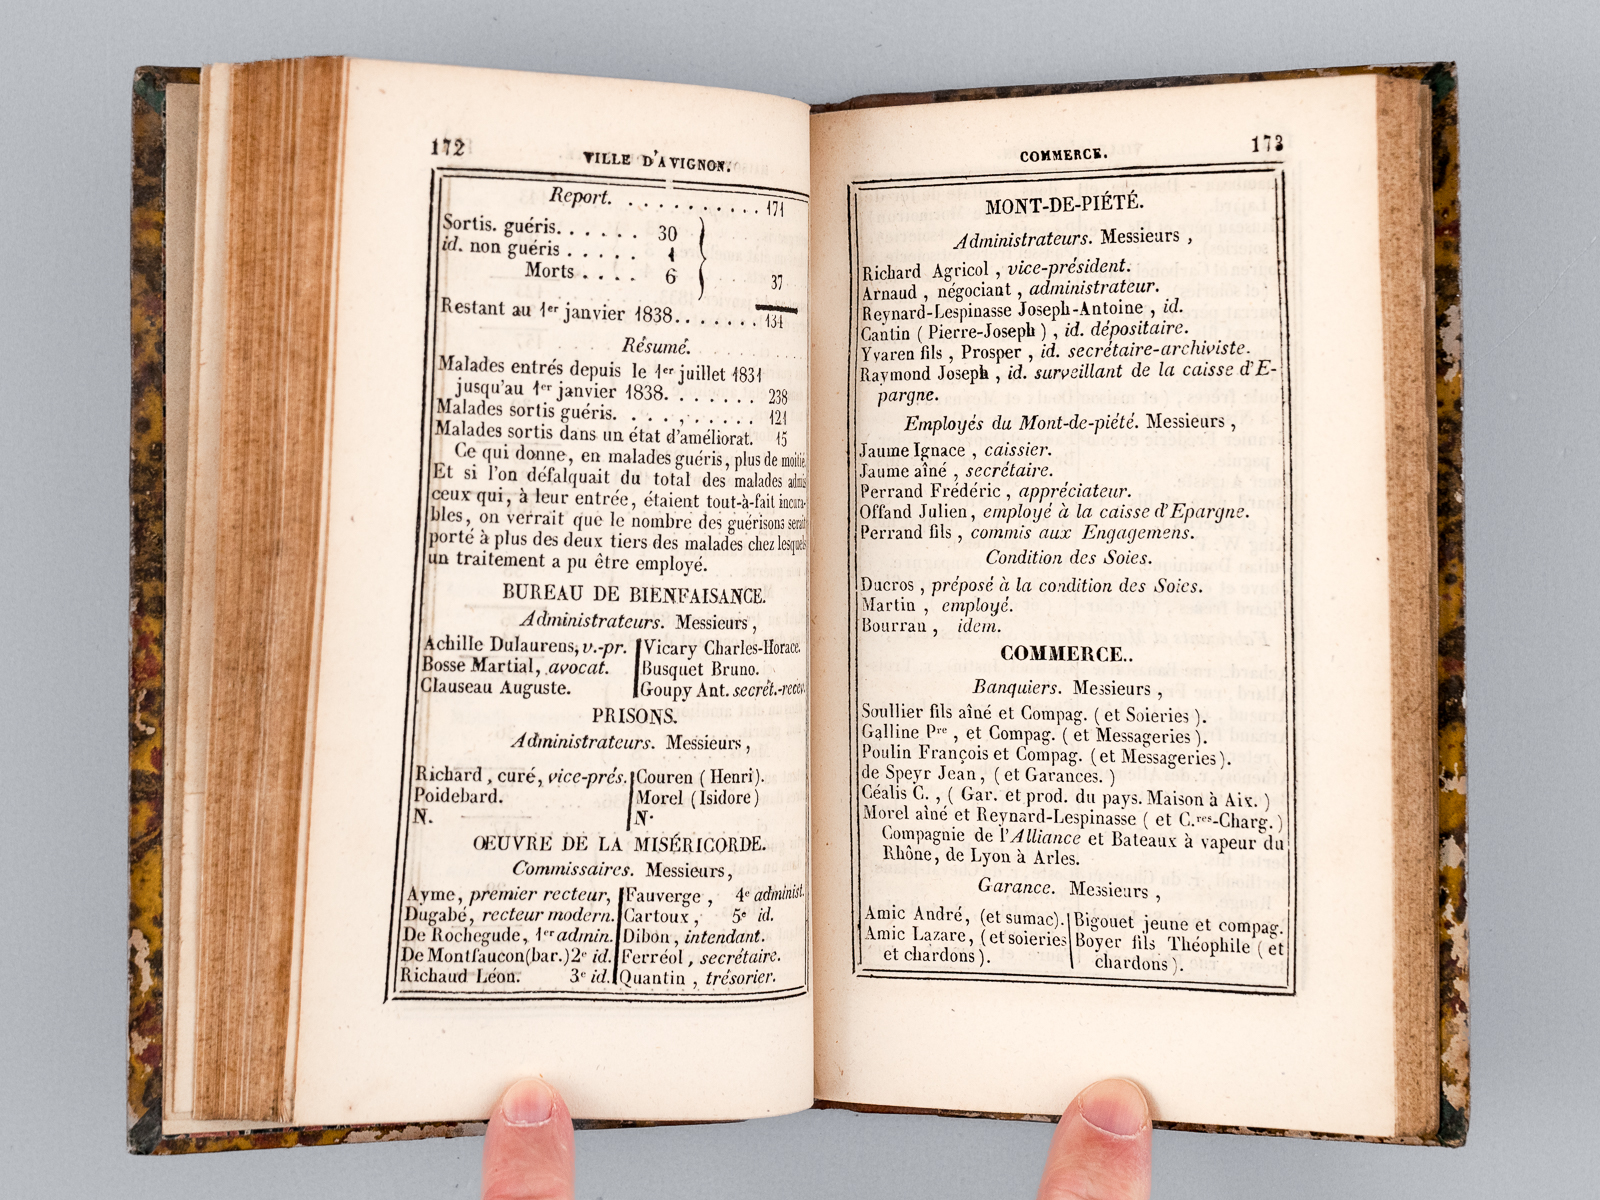 172
VILLE D'AVIGNON.
Report. . . . . . . . . . . 171
Sortis. guéris. . . . . . . 30
id. non guéris . . . . . 1
Morts . . . . 6
37
Restant au 1er janvier 1838. . . . . . . . 134
Résumé.
Malades entrés depuis le 1er juillet 1831
jusqu'au 1er janvier 1838. . . . . . . . 238
Malades sortis guéris. . . . . . . . . . 121
Malades sortis dans un état d'améliorat. 15
Ce qui donne, en malades guéris, plus de moitié.
Et si l'on défalquait du total des malades admis
ceux qui, à leur entrée, étaient tout-à-fait incura-
bles, on verrait que le nombre des guérisons serait
porté à plus des deux tiers des malades chez lesquels
un traitement a pu être employé.
BUREAU DE BIENFAISANCE.
Administrateurs. Messieurs,
Achille Dulaurens, v.-pr.
Bosse Martial, avocat.
Clauseau Auguste.
Vicary Charles-Horace.
Busquet Bruno.
Goupy Ant. secrét.-recev.
PRISONS.
Administrateurs. Messieurs,
Richard, curé, vice-prés.
Poidebard.
N.
Couren (Henri).
Morel (Isidore)
N.
ŒUVRE DE LA MISÉRICORDE.
Commissaires. Messieurs,
Ayme, premier recteur,
Dugabé, recteur modern.
De Rochegude, 1er admin.
De Montfaucon(bar.)2e id.
Richaud Léon. 3e id.
Fauverge, 4e administ.
Cartoux, 5e id.
Dibon, intendant.
Ferréol, secrétaire.
Quantin, trésorier.
COMMERCE.
173
MONT-DE-PIÉTÉ.
Administrateurs. Messieurs,
Richard Agricol, vice-président.
Arnaud, négociant, administrateur.
Reynard-Lespinasse Joseph-Antoine, id.
Cantin (Pierre-Joseph), id. dépositaire.
Yvaren fils, Prosper, id. secrétaire-archiviste.
Raymond Joseph, id. surveillant de la caisse d'E-
pargne.
Employés du Mont-de-piété. Messieurs,
Jaume Ignace, caissier.
Jaume aîné, secrétaire.
Perrand Frédéric, appréciateur.
Offand Julien, employé à la caisse d'Epargne.
Perrand fils, commis aux Engagemens.
Condition des Soies.
Ducros, préposé à la condition des Soies.
Martin, employé.
Bourrau, idem.
COMMERCE..
Banquiers. Messieurs,
Soullier fils aîné et Compag. (et Soieries).
Galline Pre, et Compag. (et Messageries).
Poulin François et Compag. (et Messageries).
de Speyr Jean, (et Garances.)
Céalis C., (Gar. et prod. du pays. Maison à Aix.)
Morel aîné et Reynard-Lespinasse (et C.res-Charg.)
Compagnie de l'Alliance et Bateaux à vapeur du
Rhône, de Lyon à Arles.
Garance. Messieurs,
Amic André, (et sumac).
Amic Lazare, (et soieries
et chardons).
Bigouet jeune et compag.
Boyer fils Théophile (et
chardons).